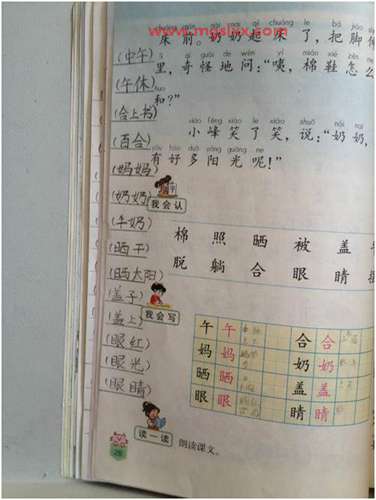 www.mgslxx.com
床前。奶奶起床了，把脚伸
里，奇怪地问：“咦，棉鞋怎么
和？”
xiǎo fēng xiào le xiào shuō nǎi nai
小峰笑了笑，说：“奶奶，
yǒu hǎo duō yáng guāng ne
有好多阳光呢！”
(中午)
(午休)
(合上书)
(百合)
(妈妈)
(奶奶)
(牛奶)
(晒干)
(晒太阳)
(盖子)
(盖上)
(眼红)
(眼光)
(眼睛)
我会认
棉 照 晒 被 盖
脱 躺 合 眼 睛
我会写
午 午 合 合
妈 妈 奶 奶
晒 晒 盖 盖
眼 眼 睛 睛
读一读 朗读课文。